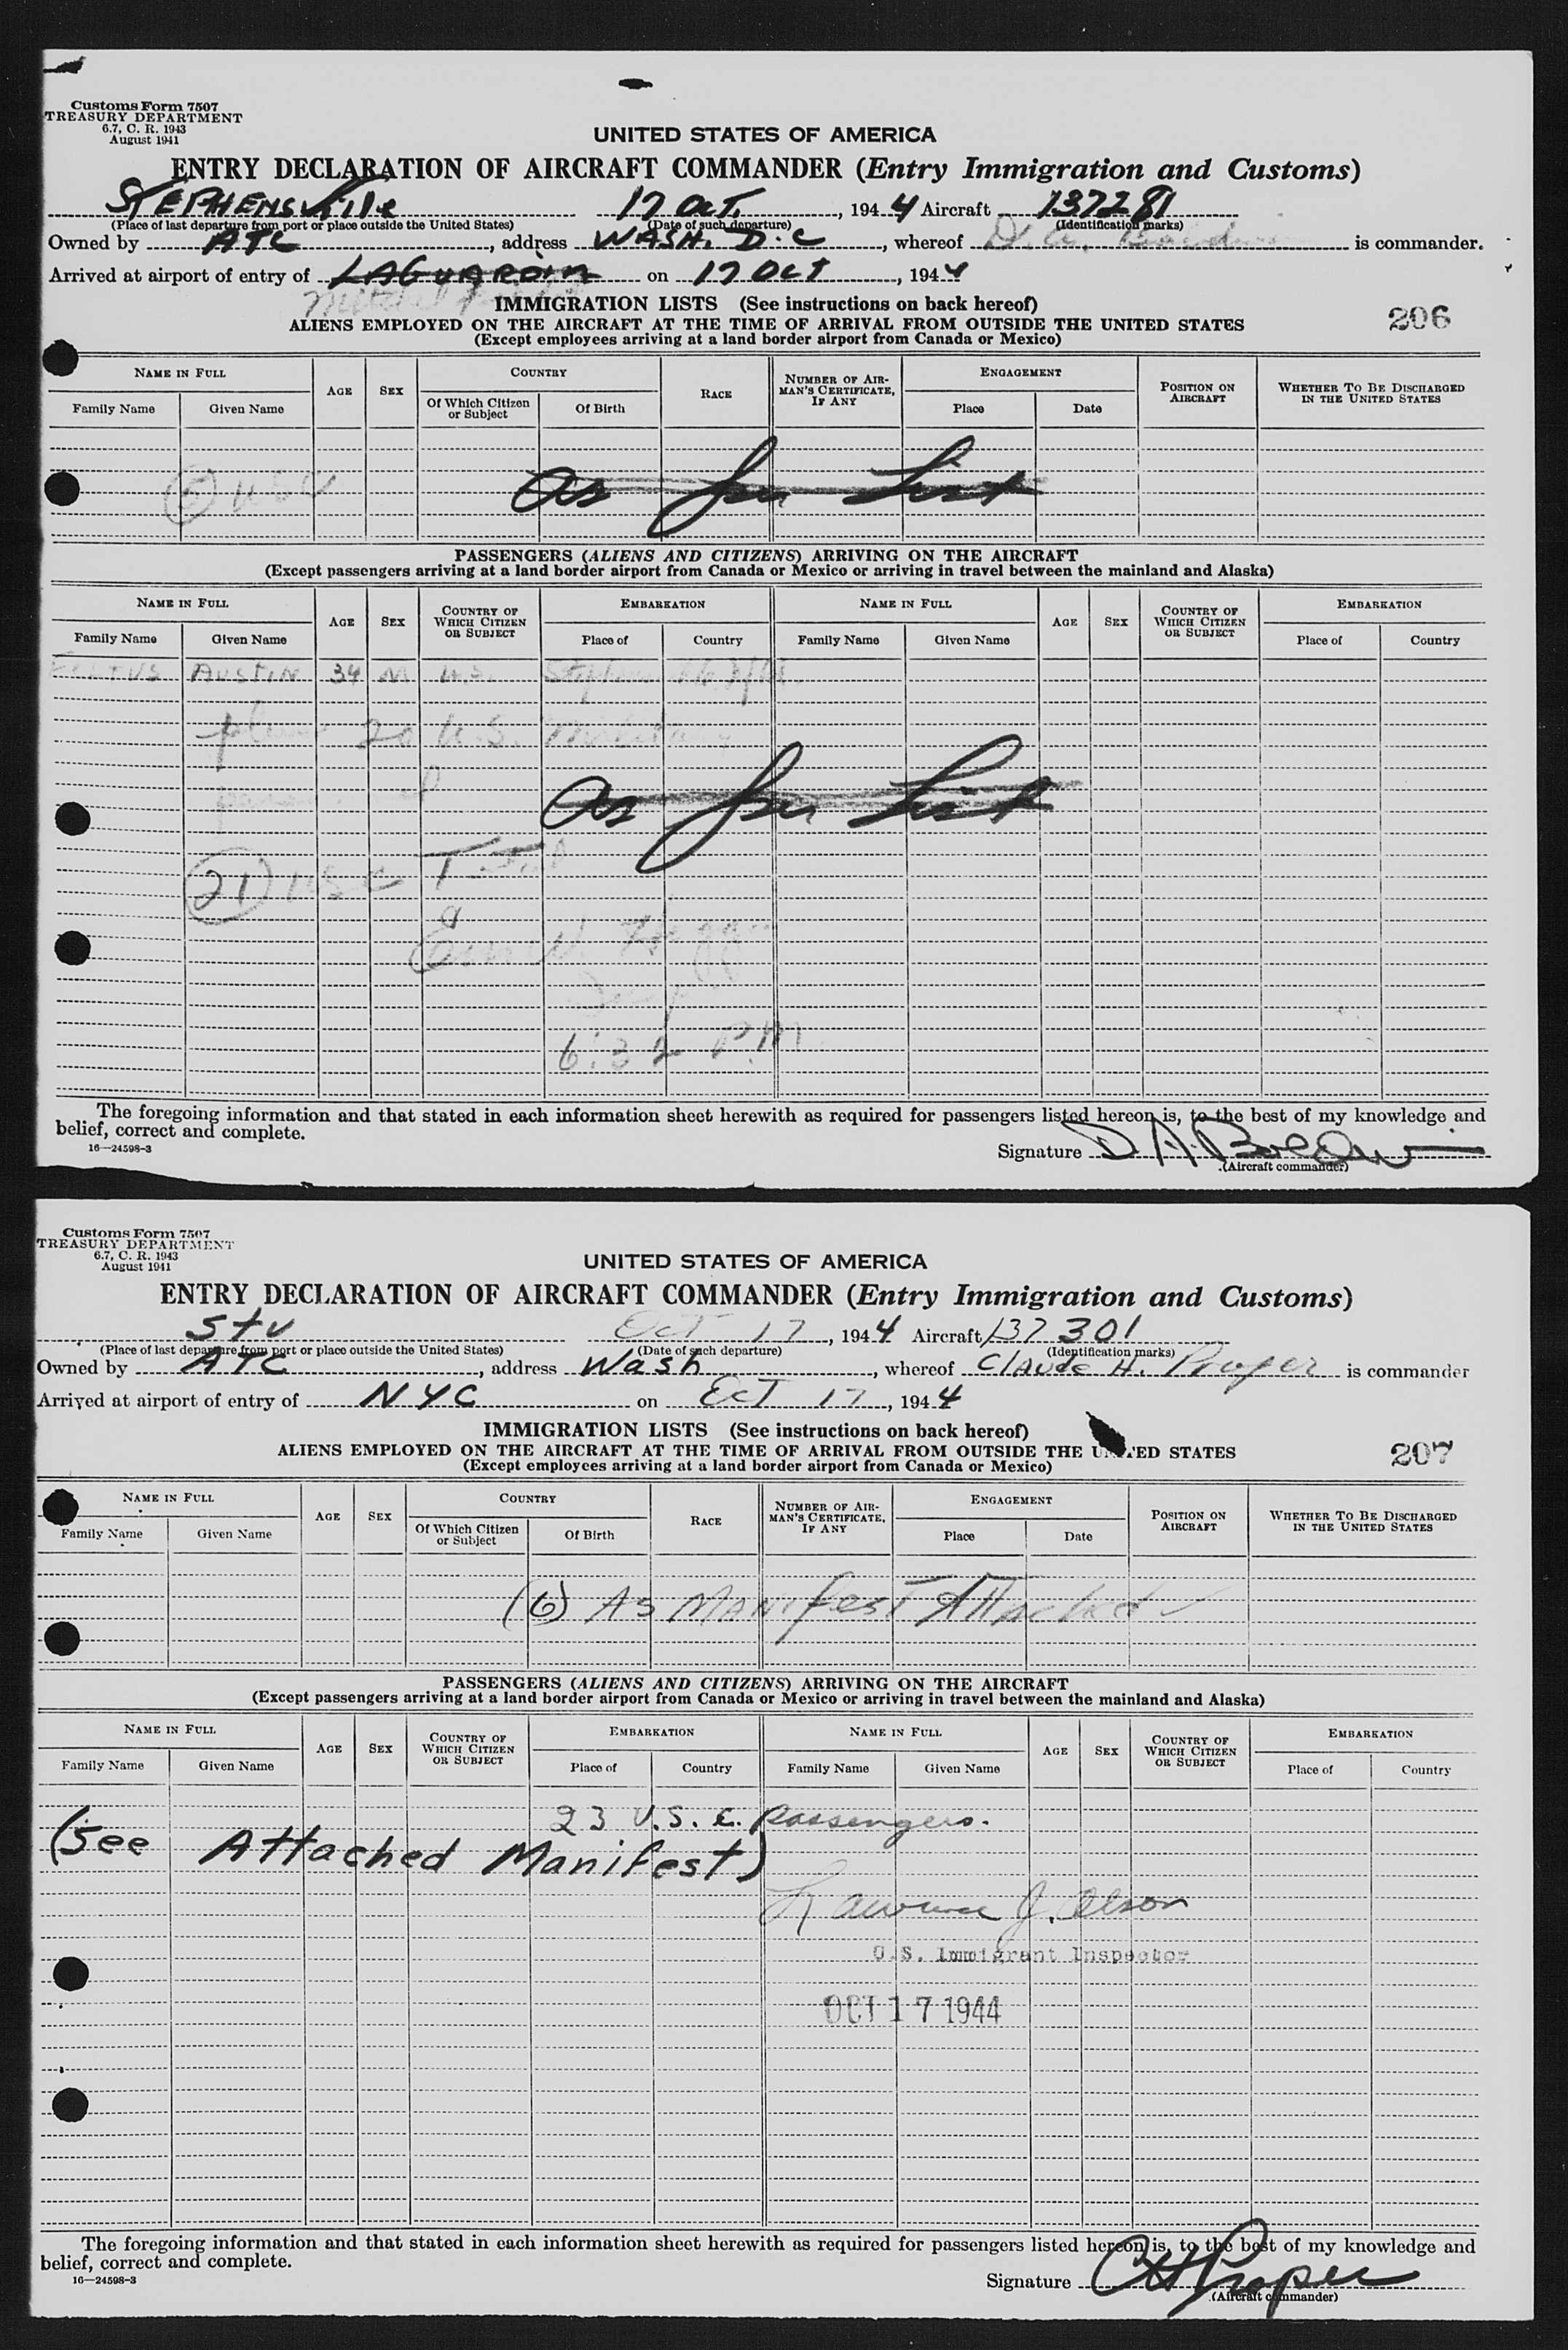 Customs Form 7507
TREASURY DEPARTMENT
6.7, C. R. 1943
August 1941
UNITED STATES OF AMERICA
ENTRY DECLARATION OF AIRCRAFT COMMANDER (Entry Immigration and Customs)
STEPHENSVIlle 17 OCT. , 1944 Aircraft 137281
(Place of last departure from port or place outside the United States) (Date of such departure) (Identification marks)
Owned by ATC , address WASH. D.C , whereof D. A. Baldwin is commander.
Arrived at airport of entry of LAGUARDIA on 17 OCT , 1944
Mitchel
IMMIGRATION LISTS (See instructions on back hereof)
206
ALIENS EMPLOYED ON THE AIRCRAFT AT THE TIME OF ARRIVAL FROM OUTSIDE THE UNITED STATES
(Except employees arriving at a land border airport from Canada or Mexico)
NAME IN FULL AGE SEX COUNTRY RACE NUMBER OF AIRMAN'S CERTIFICATE, IF ANY ENGAGEMENT POSITION ON AIRCRAFT WHETHER TO BE DISCHARGED IN THE UNITED STATES
Family Name Given Name Of Which Citizen or Subject Of Birth Place Date
(5) USC As per List
PASSENGERS (ALIENS AND CITIZENS) ARRIVING ON THE AIRCRAFT
(Except passengers arriving at a land border airport from Canada or Mexico or arriving in travel between the mainland and Alaska)
NAME IN FULL AGE SEX COUNTRY OF WHICH CITIZEN OR SUBJECT EMBARKATION NAME IN FULL AGE SEX COUNTRY OF WHICH CITIZEN OR SUBJECT EMBARKATION
Family Name Given Name Place of Country Family Name Given Name Place of Country
AUSTIN 34 M U.S.
plus 20 U.S. Military
As per List
(21) USC Total
6:32 P.M
The foregoing information and that stated in each information sheet herewith as required for passengers listed hereon is, to the best of my knowledge and
belief, correct and complete.
16—24598-3
Signature D. A. Baldwin
(Aircraft commander)
Customs Form 7507
TREASURY DEPARTMENT
6.7, C. R. 1943
August 1941
UNITED STATES OF AMERICA
ENTRY DECLARATION OF AIRCRAFT COMMANDER (Entry Immigration and Customs)
Stv Oct 17 , 1944 Aircraft 137301
(Place of last departure from port or place outside the United States) (Date of such departure) (Identification marks)
Owned by ATC , address Wash , whereof Claude H. Proper is commander
Arrived at airport of entry of NYC on Oct 17 , 1944
IMMIGRATION LISTS (See instructions on back hereof)
207
ALIENS EMPLOYED ON THE AIRCRAFT AT THE TIME OF ARRIVAL FROM OUTSIDE THE UNITED STATES
(Except employees arriving at a land border airport from Canada or Mexico)
NAME IN FULL AGE SEX COUNTRY RACE NUMBER OF AIRMAN'S CERTIFICATE, IF ANY ENGAGEMENT POSITION ON AIRCRAFT WHETHER TO BE DISCHARGED IN THE UNITED STATES
Family Name Given Name Of Which Citizen or Subject Of Birth Place Date
(6) As Manifest Attached
PASSENGERS (ALIENS AND CITIZENS) ARRIVING ON THE AIRCRAFT
(Except passengers arriving at a land border airport from Canada or Mexico or arriving in travel between the mainland and Alaska)
NAME IN FULL AGE SEX COUNTRY OF WHICH CITIZEN OR SUBJECT EMBARKATION NAME IN FULL AGE SEX COUNTRY OF WHICH CITIZEN OR SUBJECT EMBARKATION
Family Name Given Name Place of Country Family Name Given Name Place of Country
23 U.S.C. passengers.
(See Attached Manifest)
Lawrence J. Olson
U.S. Immigrant Inspector
OCT 17 1944
The foregoing information and that stated in each information sheet herewith as required for passengers listed hereon is, to the best of my knowledge and
belief, correct and complete.
16—24598-3
Signature C H Proper
(Aircraft commander)